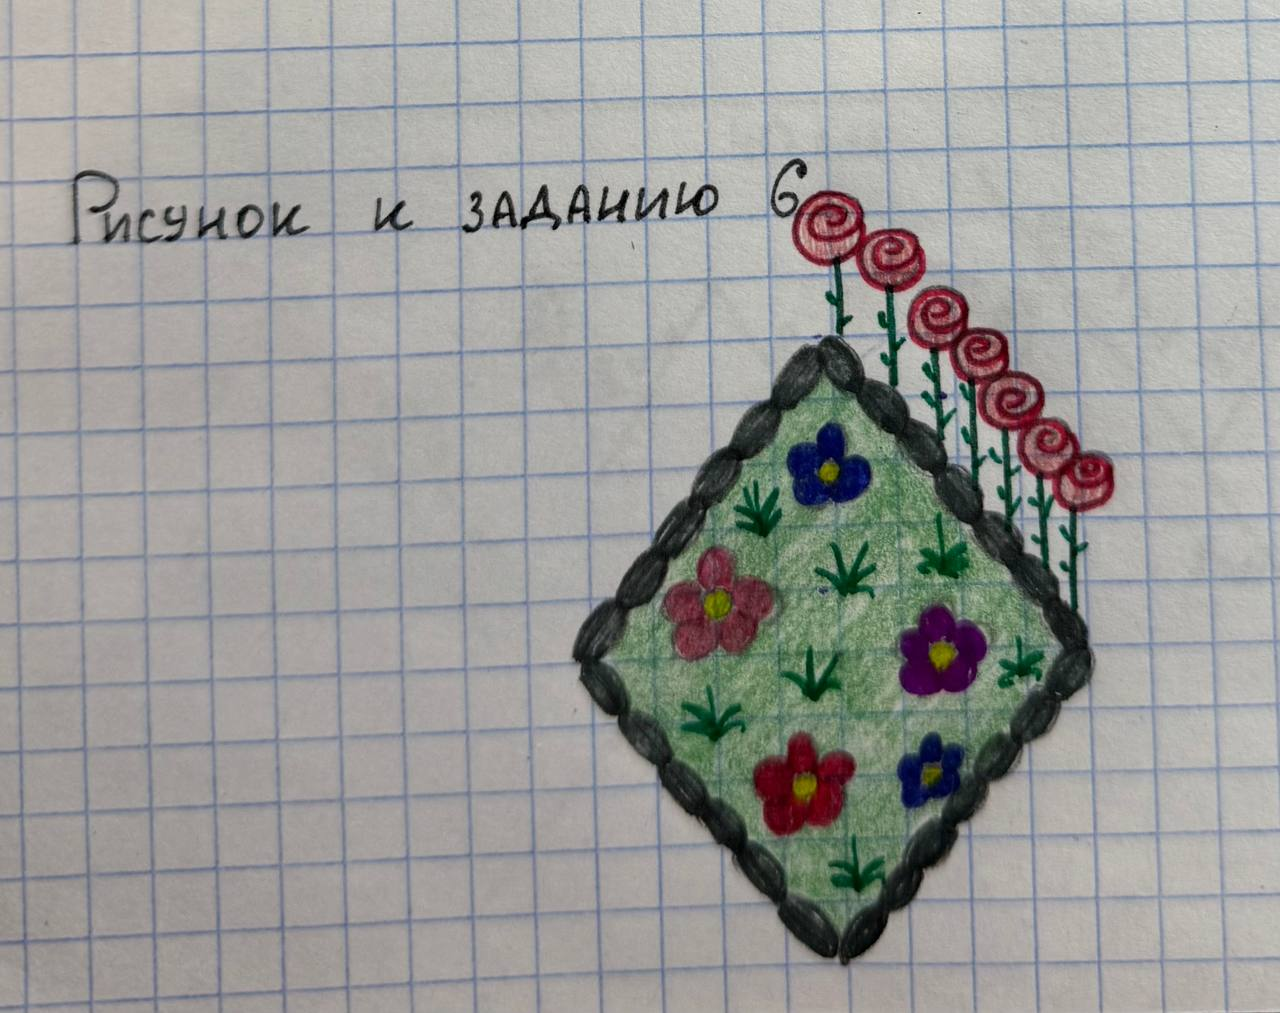 Рисунок к заданию 6